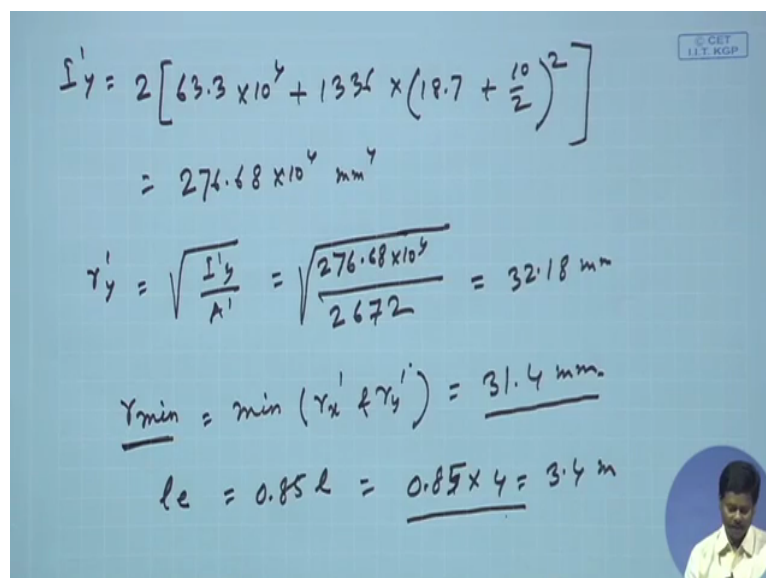 © CET
I.I.T. KGP
I'y = 2[63.3 ×10⁴ + 1336 ×(18.7 + 10/2)²]
= 276.68 ×10⁴ mm⁴
r'y = √(I'y/A') = √(276.68×10⁴/2672) = 32.18 mm
rmin = min (rx' & ry') = 31.4 mm.
le = 0.85 l = 0.85 × 4 = 3.4 m